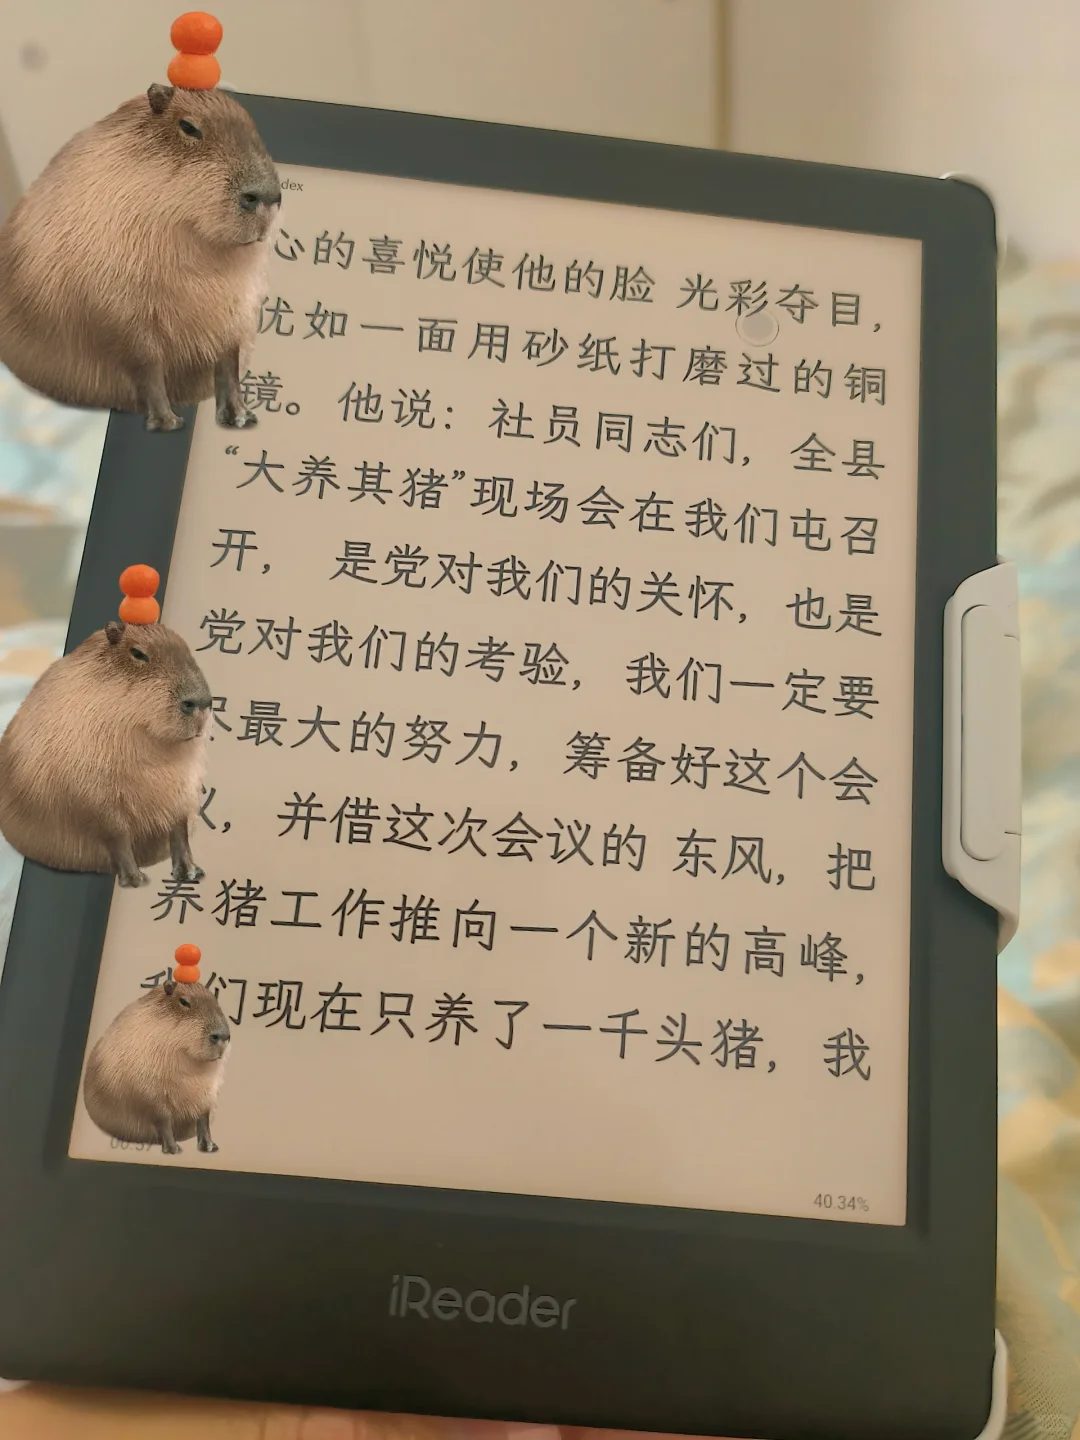 dex
心的喜悦使他的脸 光彩夺目，
优如一面用砂纸打磨过的铜
镜。他说：社员同志们，全县
“大养其猪”现场会在我们屯召
开， 是党对我们的关怀，也是
党对我们的考验，我们一定要
尽最大的努力，筹备好这个会
议，并借这次会议的 东风，把
养猪工作推向一个新的高峰，
我们现在只养了一千头猪，我
40.34%
iReader